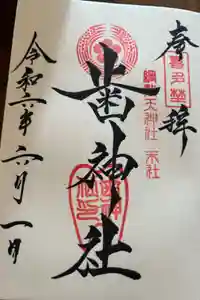 奉拝
喜多埜
綱敷天神社 末社
歯神社
令和六年 六月 一日